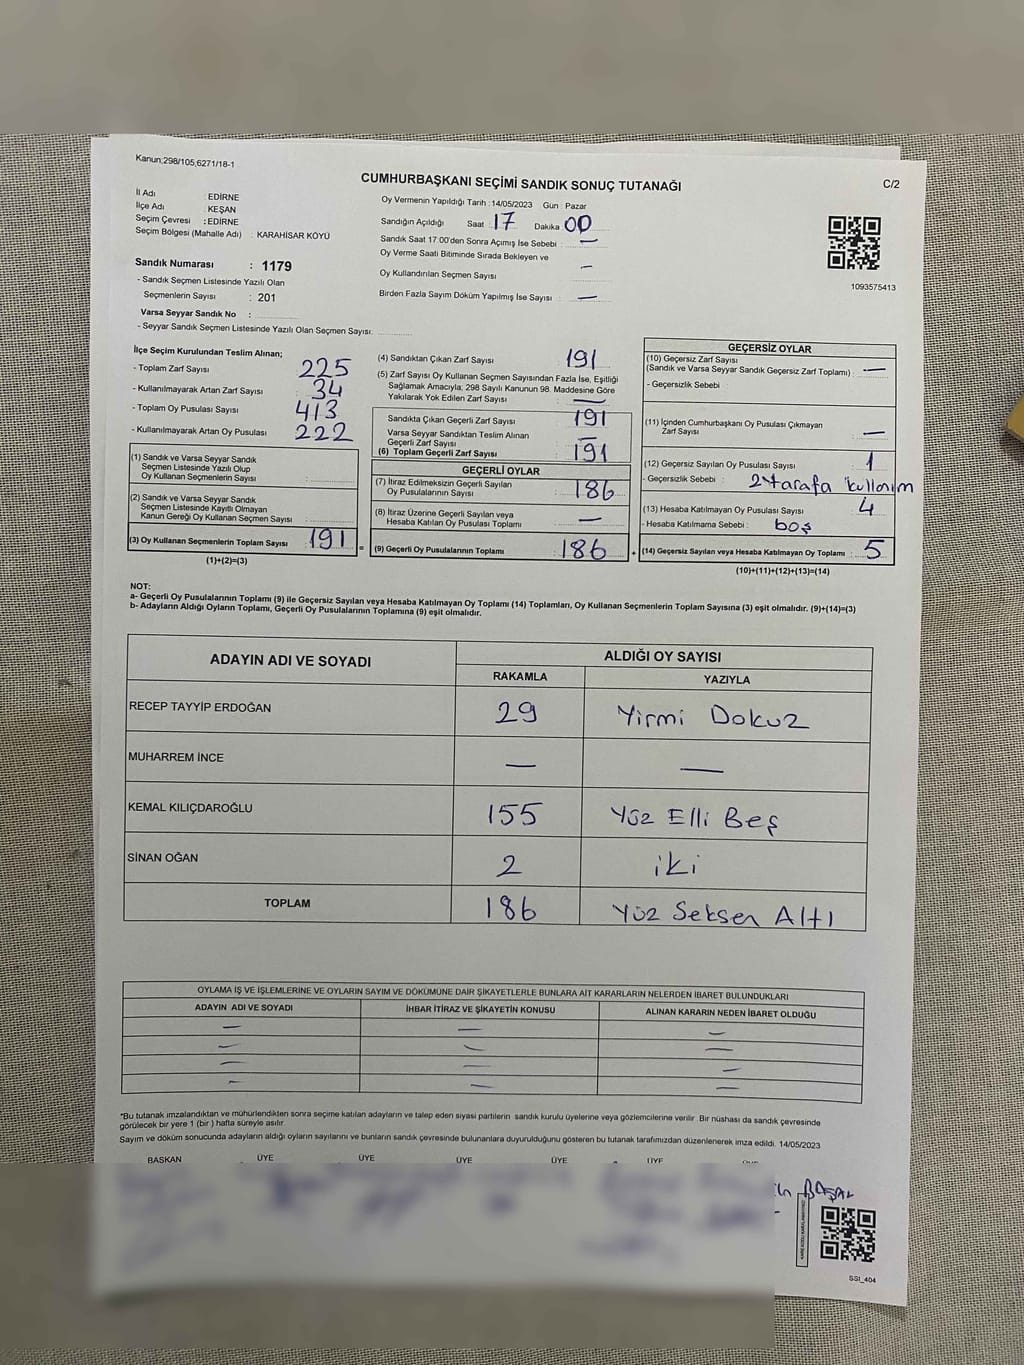 Kanun;298/105,6271/18-1
CUMHURBAŞKANI SEÇİMİ SANDIK SONUÇ TUTANAĞI
C/2
İl Adı : EDİRNE
İlçe Adı : KEŞAN
Seçim Çevresi : EDİRNE
Seçim Bölgesi (Mahalle Adı) : KARAHİSAR KÖYÜ
Sandık Numarası : 1179
- Sandık Seçmen Listesinde Yazılı Olan
Seçmenlerin Sayısı : 201
Varsa Seyyar Sandık No :
- Seyyar Sandık Seçmen Listesinde Yazılı Olan Seçmen Sayısı:
Oy Vermenin Yapıldığı Tarih :14/05/2023 Gün : Pazar
Sandığın Açıldığı Saat 17 Dakika 00
Sandık Saat 17.00'den Sonra Açımış İse Sebebi : —
Oy Verme Saati Bitiminde Sırada Bekleyen ve
Oy Kullandırılan Seçmen Sayısı —
Birden Fazla Sayım Döküm Yapılmış İse Sayısı : —
1093575413
İlçe Seçim Kurulundan Teslim Alınan;
- Toplam Zarf Sayısı : 225
- Kullanılmayarak Artan Zarf Sayısı : 34
- Toplam Oy Pusulası Sayısı : 413
- Kullanılmayarak Artan Oy Pusulası : 222
(1) Sandık ve Varsa Seyyar Sandık
Seçmen Listesinde Yazılı Olup
Oy Kullanan Seçmenlerin Sayısı :
(2) Sandık ve Varsa Seyyar Sandık
Seçmen Listesinde Kayıtlı Olmayan
Kanun Gereği Oy Kullanan Seçmen Sayısı :
(3) Oy Kullanan Seçmenlerin Toplam Sayısı : 191 =
(1)+(2)=(3)
(4) Sandıktan Çıkan Zarf Sayısı : 191
(5) Zarf Sayısı Oy Kullanan Seçmen Sayısından Fazla İse, Eşitliği
Sağlamak Amacıyla, 298 Sayılı Kanunun 98. Maddesine Göre
Yakılarak Yok Edilen Zarf Sayısı : —
Sandıkta Çıkan Geçerli Zarf Sayısı : 191
Varsa Seyyar Sandıktan Teslim Alınan
Geçerli Zarf Sayısı : —
(6) Toplam Geçerli Zarf Sayısı : 191
GEÇERLİ OYLAR
(7) İtiraz Edilmeksizin Geçerli Sayılan
Oy Pusulalarının Sayısı : 186
(8) İtiraz Üzerine Geçerli Sayılan veya
Hesaba Katılan Oy Pusulası Toplamı : —
(9) Geçerli Oy Pusulalarının Toplamı : 186 +
GEÇERSİZ OYLAR
(10) Geçersiz Zarf Sayısı
(Sandık ve Varsa Seyyar Sandık Geçersiz Zarf Toplamı) : —
- Geçersizlik Sebebi :
(11) İçinden Cumhurbaşkanı Oy Pusulası Çıkmayan
Zarf Sayısı : —
(12) Geçersiz Sayılan Oy Pusulası Sayısı : 1
- Geçersizlik Sebebi : 2 tarafa kullanım
(13) Hesaba Katılmayan Oy Pusulası Sayısı : 4
- Hesaba Katılmama Sebebi : boş
(14) Geçersiz Sayılan veya Hesaba Katılmayan Oy Toplamı : 5
(10)+(11)+(12)+(13)=(14)
NOT:
a- Geçerli Oy Pusulalarının Toplamı (9) ile Geçersiz Sayılan veya Hesaba Katılmayan Oy Toplamı (14) Toplamları, Oy Kullanan Seçmenlerin Toplam Sayısına (3) eşit olmalıdır. (9)+(14)=(3)
b- Adayların Aldığı Oyların Toplamı, Geçerli Oy Pusulalarının Toplamına (9) eşit olmalıdır.
ADAYIN ADI VE SOYADI ALDIĞI OY SAYISI
RAKAMLA YAZIYLA
RECEP TAYYİP ERDOĞAN 29 Yirmi Dokuz
MUHARREM İNCE — —
KEMAL KILIÇDAROĞLU 155 Yüz Elli Beş
SİNAN OĞAN 2 iki
TOPLAM 186 Yüz Seksen Altı
OYLAMA İŞ VE İŞLEMLERİNE VE OYLARIN SAYIM VE DÖKÜMÜNE DAİR ŞİKAYETLERLE BUNLARA AİT KARARLARIN NELERDEN İBARET BULUNDUKLARI
ADAYIN ADI VE SOYADI İHBAR İTİRAZ VE ŞİKAYETİN KONUSU ALINAN KARARIN NEDEN İBARET OLDUĞU
— — —
— — —
— — —
— — —
*Bu tutanak imzalandıktan ve mühürlendikten sonra seçime katılan adayların ve talep eden siyasi partilerin sandık kurulu üyelerine veya gözlemcilerine verilir. Bir nüshası da sandık çevresinde
görülecek bir yere 1 (bir ) hafta süreyle asılır.
Sayım ve döküm sonucunda adayların aldığı oyların sayılarını ve bunların sandık çevresinde bulunanlara duyurulduğunu gösteren bu tutanak tarafımızdan düzenlenerek imza edildi. 14/05/2023
BAŞKAN ÜYE ÜYE ÜYE ÜYE ÜYE ÜYE
BAŞAL
SSI_404